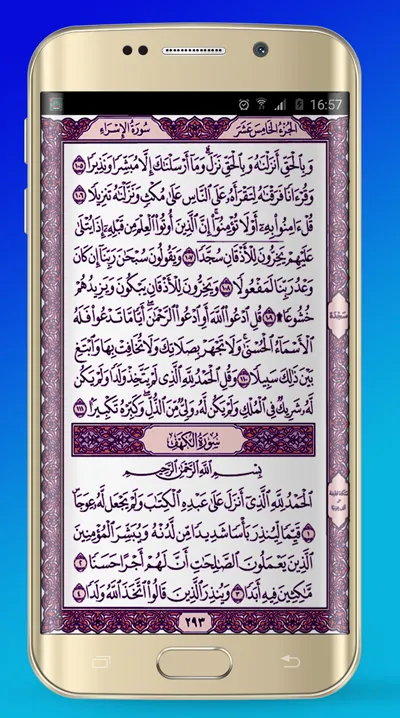 16:57
الجُزْءُ الخَامِسَ عَشَرَ سُورَةُ الإِسْرَاءِ
وَبِٱلْحَقِّ أَنزَلْنَٰهُ وَبِٱلْحَقِّ نَزَلَ ۗ وَمَآ أَرْسَلْنَٰكَ إِلَّا مُبَشِّرًا وَنَذِيرًا ١٠٥
وَقُرْءَانًا فَرَقْنَٰهُ لِتَقْرَأَهُۥ عَلَى ٱلنَّاسِ عَلَىٰ مُكْثٍ وَنَزَّلْنَٰهُ تَنزِيلًا ١٠٦
قُلْ ءَامِنُوا۟ بِهِۦٓ أَوْ لَا تُؤْمِنُوٓا۟ ۚ إِنَّ ٱلَّذِينَ أُوتُوا۟ ٱلْعِلْمَ مِن قَبْلِهِۦٓ إِذَا يُتْلَىٰ
عَلَيْهِمْ يَخِرُّونَ لِلْأَذْقَانِ سُجَّدًا ١٠٧ وَيَقُولُونَ سُبْحَٰنَ رَبِّنَآ إِن كَانَ
وَعْدُ رَبِّنَا لَمَفْعُولًا ١٠٨ وَيَخِرُّونَ لِلْأَذْقَانِ يَبْكُونَ وَيَزِيدُهُمْ
خُشُوعًا ۩ ١٠٩ قُلِ ٱدْعُوا۟ ٱللَّهَ أَوِ ٱدْعُوا۟ ٱلرَّحْمَٰنَ ۖ أَيًّا مَّا تَدْعُوا۟ فَلَهُ
ٱلْأَسْمَآءُ ٱلْحُسْنَىٰ ۚ وَلَا تَجْهَرْ بِصَلَاتِكَ وَلَا تُخَافِتْ بِهَا وَٱبْتَغِ
بَيْنَ ذَٰلِكَ سَبِيلًا ١١٠ وَقُلِ ٱلْحَمْدُ لِلَّهِ ٱلَّذِى لَمْ يَتَّخِذْ وَلَدًا وَلَمْ يَكُن
لَّهُۥ شَرِيكٌ فِى ٱلْمُلْكِ وَلَمْ يَكُن لَّهُۥ وَلِىٌّ مِّنَ ٱلذُّلِّ ۖ وَكَبِّرْهُ تَكْبِيرًۢا ١١١
سُورَةُ الكَهْفِ
بِسْمِ ٱللَّهِ ٱلرَّحْمَٰنِ ٱلرَّحِيمِ
ٱلْحَمْدُ لِلَّهِ ٱلَّذِىٓ أَنزَلَ عَلَىٰ عَبْدِهِ ٱلْكِتَٰبَ وَلَمْ يَجْعَل لَّهُۥ عِوَجَا
١ قَيِّمًا لِّيُنذِرَ بَأْسًا شَدِيدًا مِّن لَّدُنْهُ وَيُبَشِّرَ ٱلْمُؤْمِنِينَ
ٱلَّذِينَ يَعْمَلُونَ ٱلصَّٰلِحَٰتِ أَنَّ لَهُمْ أَجْرًا حَسَنًا ٢
مَّٰكِثِينَ فِيهِ أَبَدًا ٣ وَيُنذِرَ ٱلَّذِينَ قَالُوا۟ ٱتَّخَذَ ٱللَّهُ وَلَدًا ٤
٢٩٣
سجدة